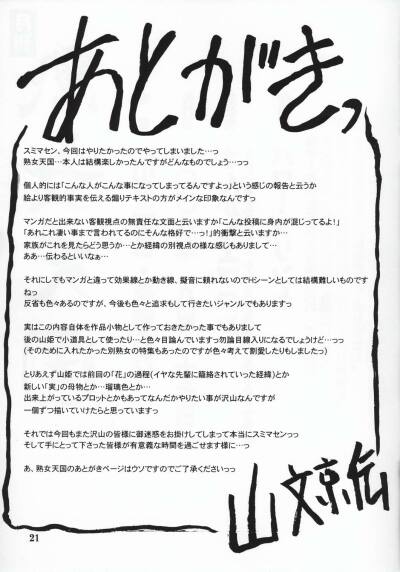 あとがきっ
スミマセン、今回はやりたかったのでやってしまいました…っ
熟女天国…本人は結構楽しかったんですがどんなものでしょう…っっ
個人的には「こんな人がこんな事になってしまってるんですよっ」という感じの報告と云うか
絵より客観的事実を伝える煽りテキストの方がメインな印象なんですが
マンガだと出来ない客観視点の無責任な文面と云いますか「こんな投稿に身内が混じってるよ!」
「あれこれ凄い事まで言われてるのにそんな格好で…っ!」的衝撃と云いますか…
家族がこれを見たらどう思うか…とか経緯の別視点の様な感じもありまして…
ああ…伝わるといいなぁ…
それにしてもマンガと違って効果線とか動き線、擬音に頼れないのでHシーンとしては結構難しいものです
ねっ
反省も色々あるのですが、今後も色々と追求もして行きたいジャンルでもありますっ
実はこの内容自体を作品小物として作っておきたかった事でもありまして
後の山姫で小道具として使ったり…と色々目論んでいますっ勿論目線入りになるでしょうけど…っっ
(そのために入れたかった別熟女の特集もあったのですが色々考えて割愛したりもしましたっ)
とりあえず山姫では前回の『花』の過程(イヤな先輩に籠絡されていった経緯)とか
新しい「実」の母物とか…瑠璃色とか…
出来上がっているプロットとかもあってなんだかやりたい事が沢山なんですが
一個ずつ描いていけたらと思っていますっ
それでは今回もまた沢山の皆様に御迷惑をお掛けしてしまって本当にスミマセンっっ
そして手にとって下さった皆様が有意義な時間を過ごせます様に…っ
あ、熟女天国のあとがきページはウソですのでご了承くださいっっ
山文京伝
21